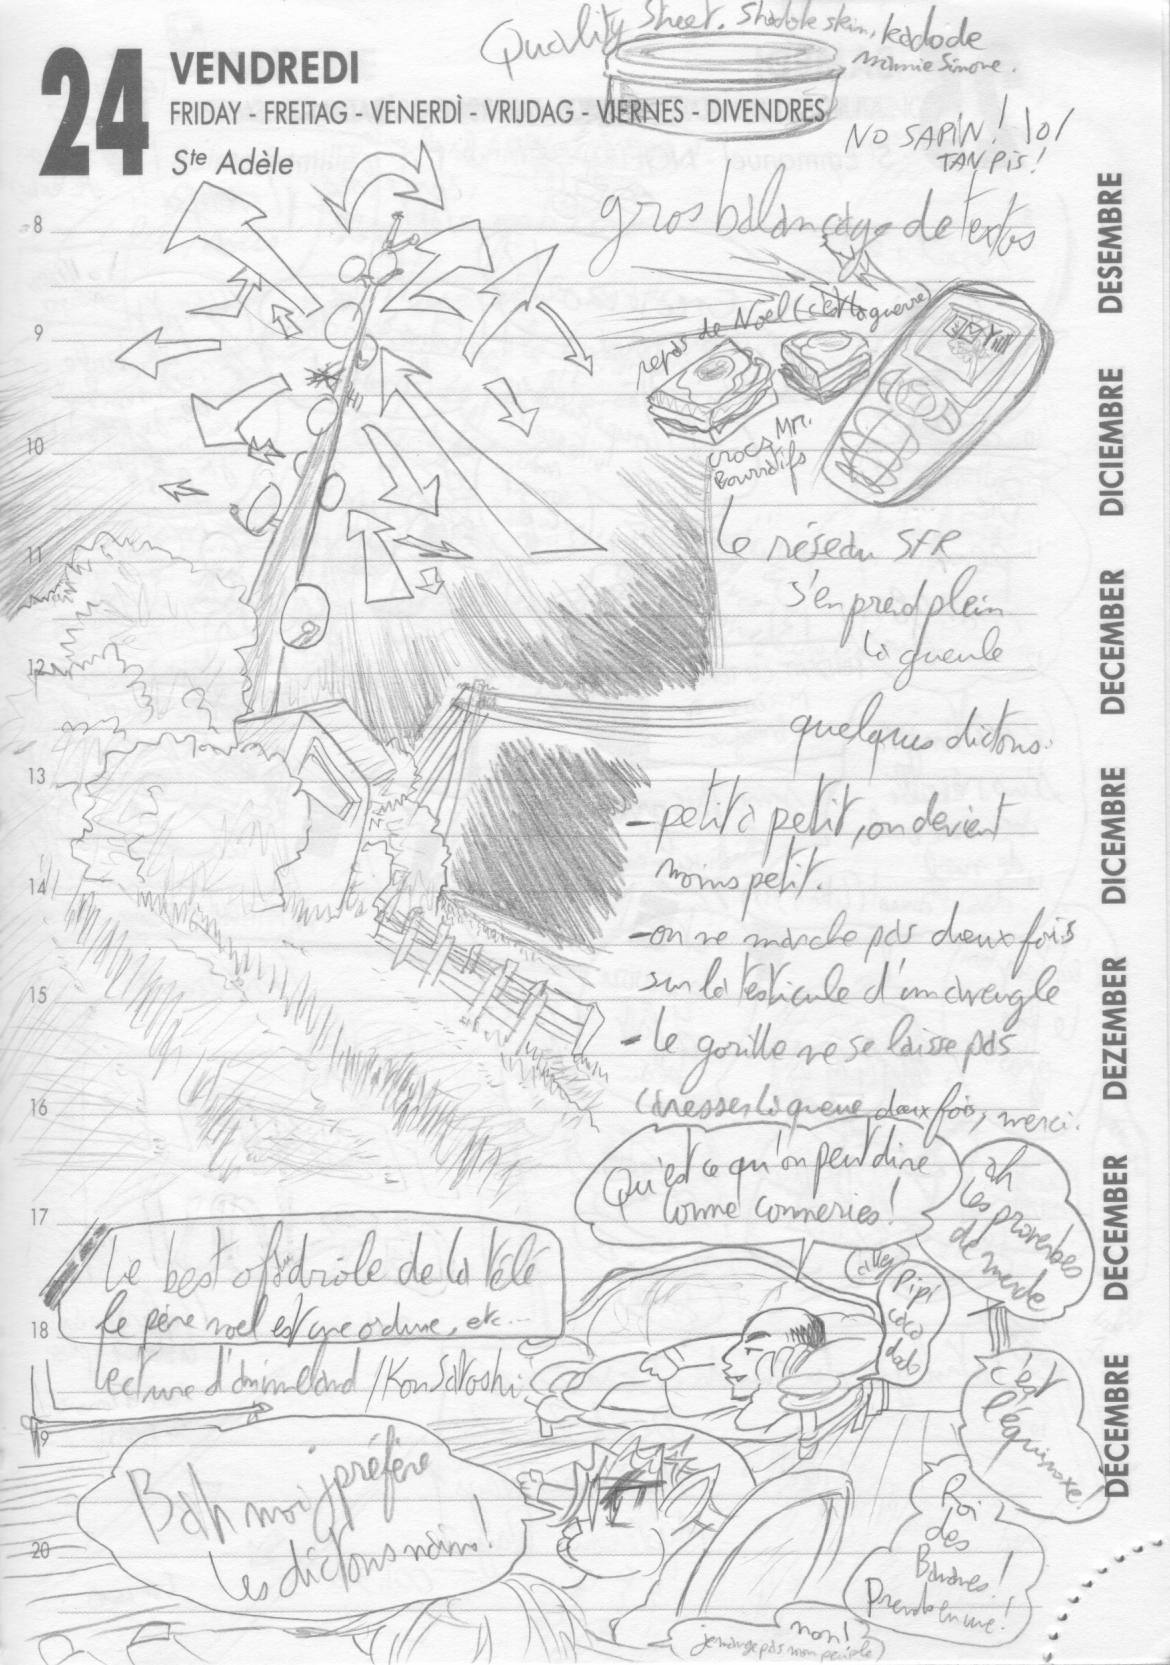 Quality Street. Shadok skin, kado de
mamie Simone.
24 VENDREDI
FRIDAY - FREITAG - VENERDÌ - VRIJDAG - VIERNES - DIVENDRES
Ste Adèle
NO SAPIN! \o/
TANPIS!
gros balançage de textos
repas de Noël (c'est la guerre)
crocs Mr.
Bourratifs
Le réseau SFR
s'en prend plein
la gueule
quelques dictons:
- petit à petit, on devient
moins petit.
- on ne marche pas deux fois
sur la testicule d'un aveugle
- le gorille ne se laisse pas
caresser la queue deux fois, merci.
Qu'est ce qu'on peut dire
comme conneries!
ah
les proverbes
de merde
Le best of du drôle de la télé
le père noel est une ordure, etc...
lecture d'animeland / Kon Satoshi
Pipi
caca
c'est
l'équinoxe!
Bah moi j'préfère
les dictons nains!
Roi
des
Bananes!
Prends en une!
non!
je mange pas mon peuple
8
9
10
11
12
13
14
15
16
17
18
19
20
DESEMBRE
DICIEMBRE
DECEMBER
DICEMBRE
DEZEMBER
DECEMBER
DÉCEMBRE